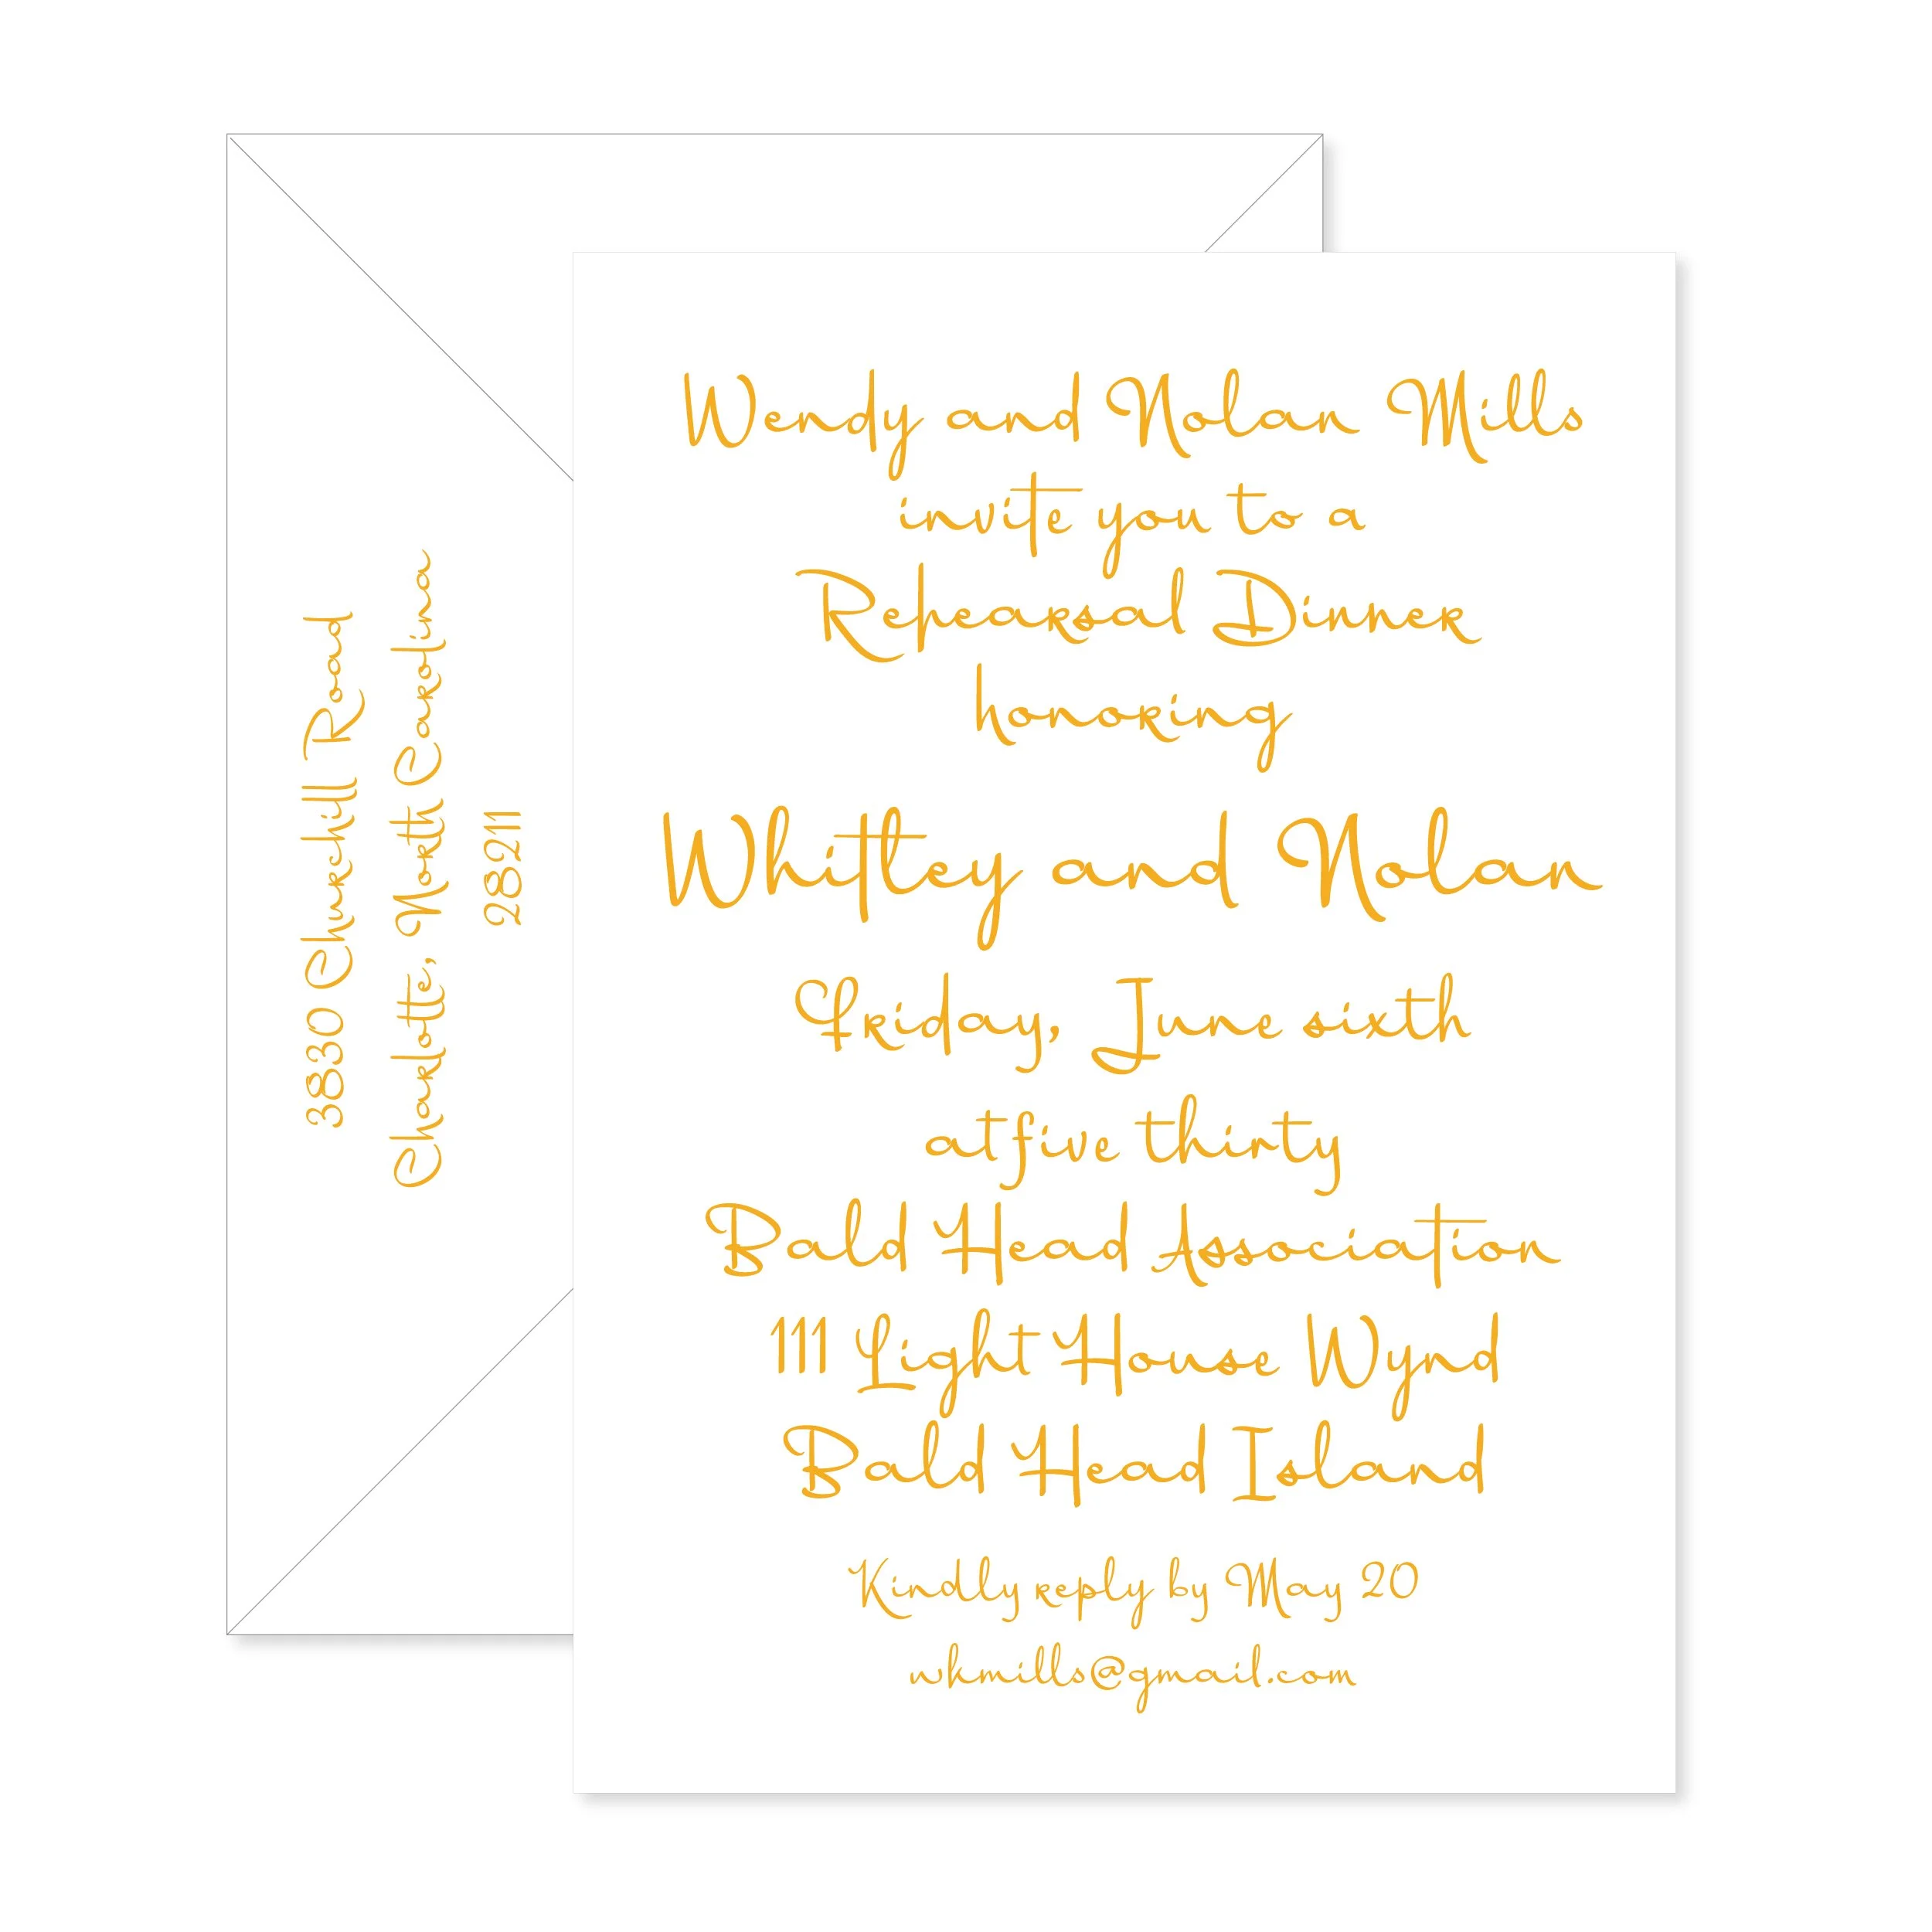 Wendy and Nolan Mills
invite you to a
Rehearsal Dinner
honoring
Whitley and Nolan
Friday, June sixth
at five thirty
Bald Head Association
111 Light House Wynd
Bald Head Island
Kindly reply by May 20
3830 Churchill Road
Charlotte, North Carolina
28211